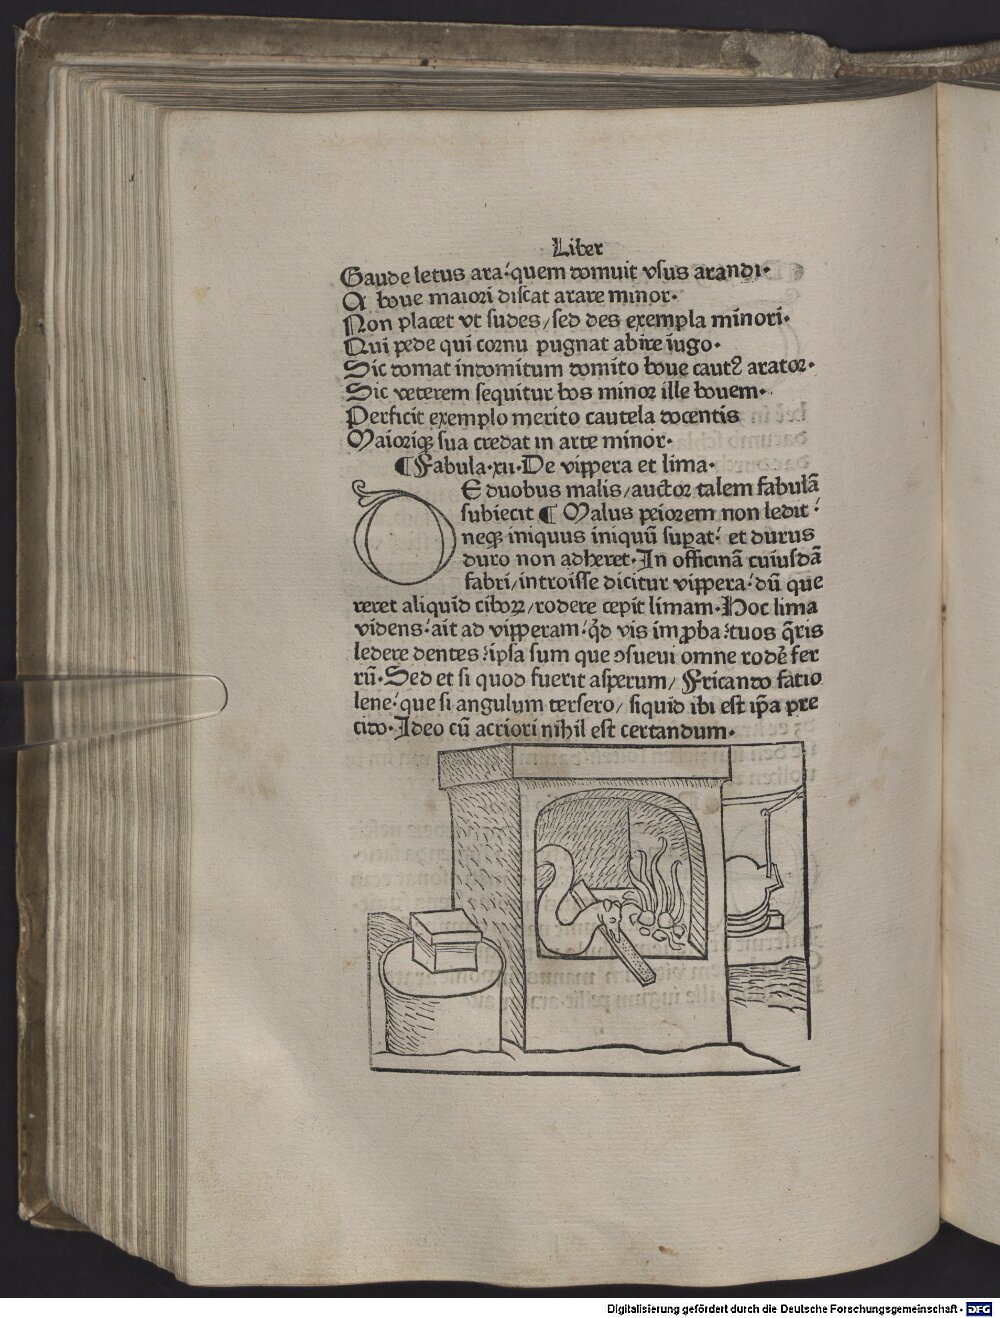 Liber
Gaude letus ara:quem domuit vsus arandi·
A boue maiori discat arare minor·
Non placet vt sudes/sed des exempla minori·
Qui pede qui cornu pugnat abire iugo·
Sic domat indomitum domito boue cautꝰ arator·
Sic veterem sequitur bos minor ille bouem·
Perficit exemplo merito cautela docentis
Maioriqꝫ sua credat in arte minor·
¶Fabula·xii·De vippera et lima·
DE duobus malis/auctor talem fabulā
subiecit ¶ Malus peiorem non ledit:
neqꝫ iniquus iniquū suꝑat: et durus
duro non adheret·In officinā cuiusdā
fabri/introisse dicitur vippera:dū que
reret aliquid ciboꝝ/rodere cepit limam·Hoc lima
videns:ait ad vipperam:qd̄ vis improba:tuos q̄ris
ledere dentes:ipsa sum que ꝯsueui omne rodē fer
rū·Sed et si quod fuerit asperum/ Fricando facio
lene:que si angulum tersero/ siquid ibi est ip̄a pre
cido·Ideo cū acriori nihil est certandum·
Digitalisierung gefördert durch die Deutsche Forschungsgemeinschaft - DFG